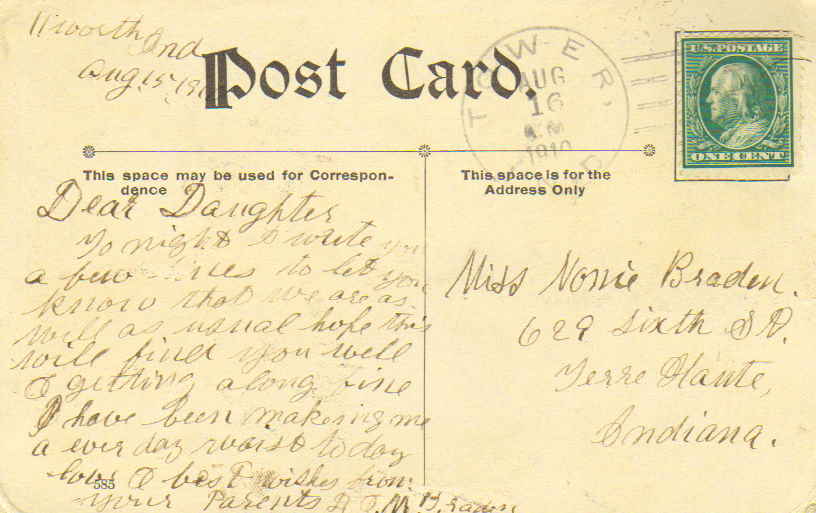 Worth Ind
Aug 15 191
Post Card.
TOWER,
AUG
16
A.M
1910
U.S. POSTAGE
ONE CENT
This space may be used for Correspon-
dence
This space is for the
Address Only
Dear Daughter
To night I write you
a few lines to let you
know that we are as
well as usual hope this
will find you well
& getting along fine
I have been makeing me
a ever day waist to day
love & best wishes from
585
your Parents
Braden
Miss Nonie Braden.
629 Sixth St.
Terre Haute,
Indiana.